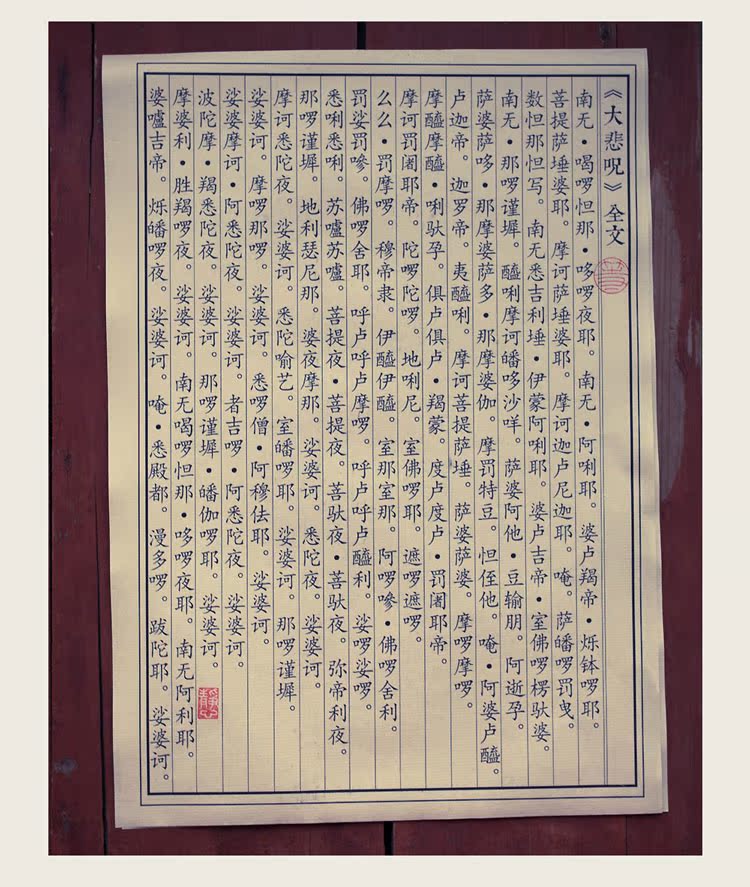 《大悲呪》全文
南无·喝啰怛那·哆啰夜耶。南无·阿唎耶。婆卢羯帝·烁钵啰耶。
菩提萨埵婆耶。摩诃萨埵婆耶。摩诃迦卢尼迦耶。唵。萨皤啰罚曳。
数怛那怛写。南无悉吉利埵·伊蒙阿唎耶。婆卢吉帝·室佛啰楞驮婆。
南无·那啰谨墀。醯唎摩诃皤哆沙咩。萨婆阿他·豆输朋。阿逝孕。
萨婆萨哆·那摩婆萨多·那摩婆伽。摩罚特豆。怛侄他。唵·阿婆卢醯。
卢迦帝。迦罗帝。夷醯唎。摩诃菩提萨埵。萨婆萨婆。摩啰摩啰。
摩醯摩醯·唎驮孕。俱卢俱卢·羯蒙。度卢度卢·罚阇耶帝。
摩诃罚阇耶帝。陀啰陀啰。地唎尼。室佛啰耶。遮啰遮啰。
么么·罚摩啰。穆帝隶。伊醯伊醯。室那室那。阿啰嘇·佛啰舍利。
罚娑罚嘇。佛啰舍耶。呼卢呼卢摩啰。呼卢呼卢醯利。娑啰娑啰。
悉唎悉唎。苏嚧苏嚧。菩提夜·菩提夜。菩驮夜·菩驮夜。弥帝利夜。
那啰谨墀。地利瑟尼那。婆夜摩那。娑婆诃。悉陀夜。娑婆诃。
摩诃悉陀夜。娑婆诃。悉陀喻艺。室皤啰耶。娑婆诃。那啰谨墀。
娑婆诃。摩啰那啰。娑婆诃。悉啰僧·阿穆佉耶。娑婆诃。
娑婆摩诃·阿悉陀夜。娑婆诃。者吉啰·阿悉陀夜。娑婆诃。
波陀摩·羯悉陀夜。娑婆诃。那啰谨墀·皤伽啰耶。娑婆诃。
摩婆利·胜羯啰夜。娑婆诃。南无喝啰怛那·哆啰夜耶。南无阿利耶。
婆嚧吉帝。烁皤啰夜。娑婆诃。唵·悉殿都。漫多啰。跋陀耶。娑婆诃。